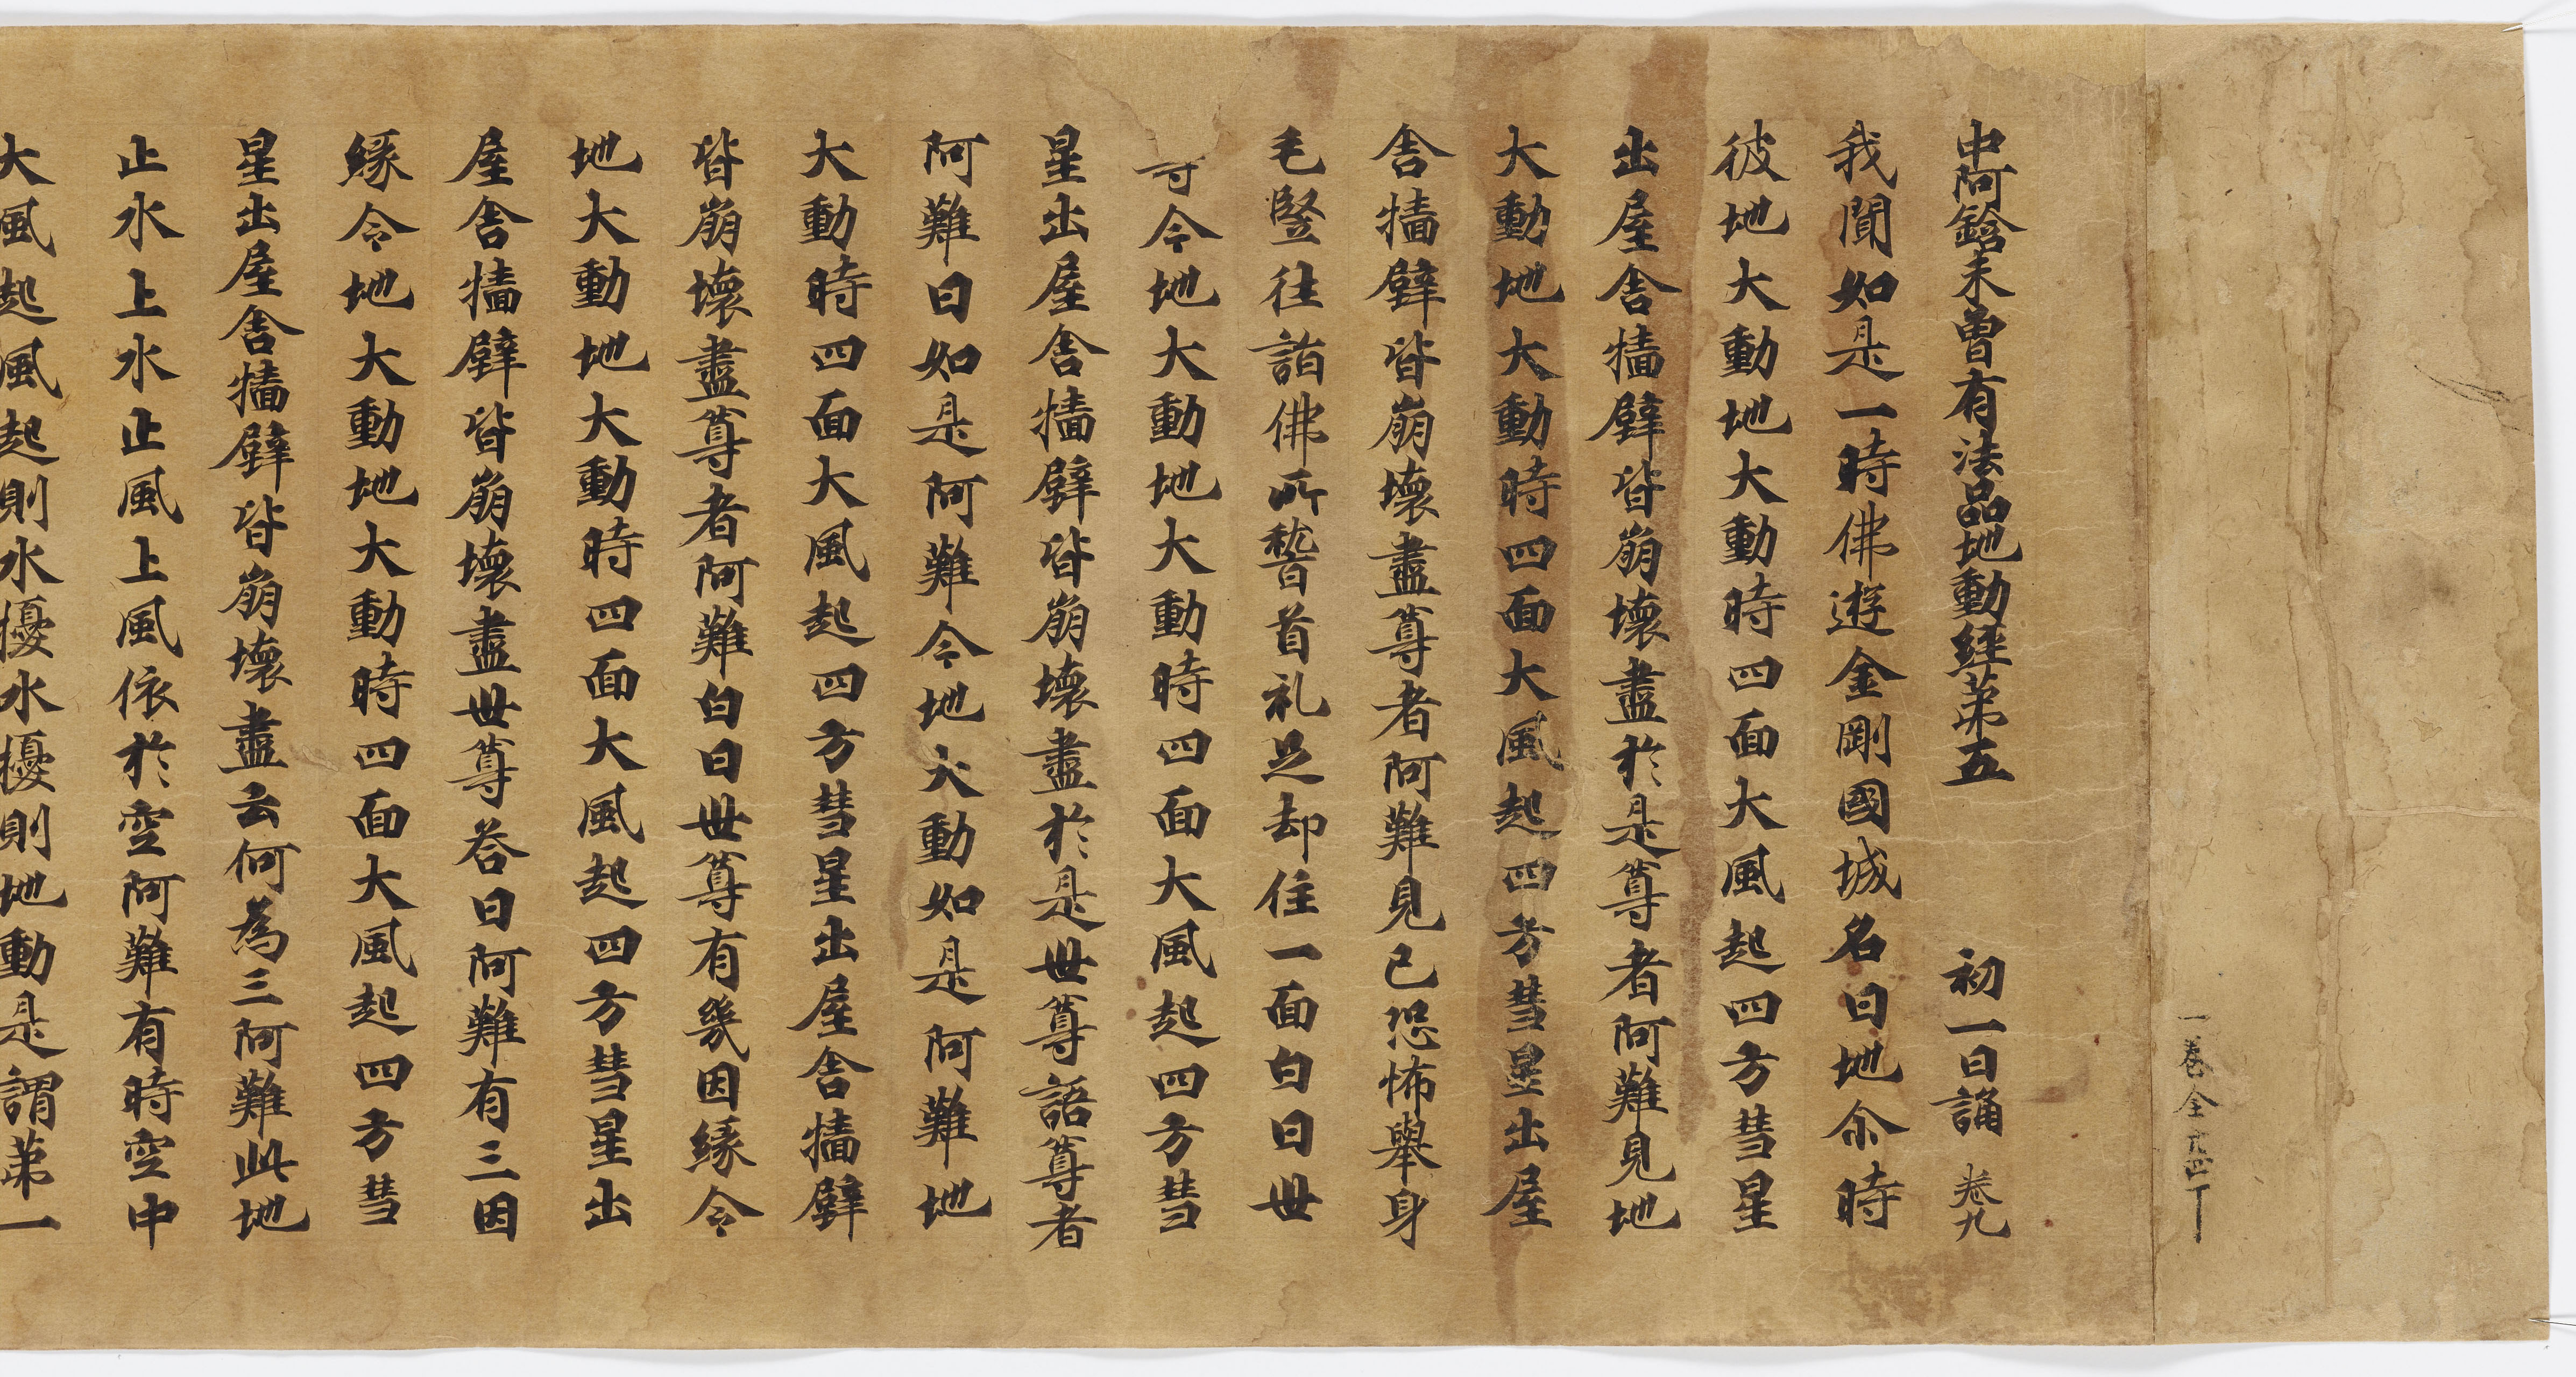 一卷全
中阿鋡未曾有法品地動經第五　初一日誦　卷九
我聞如是一時佛遊金剛國城名曰地尒時
彼地大動地大動時四面大風起四方彗星
出屋舍牆壁皆崩壞盡於是尊者阿難見地
大動地大動時四面大風起四方彗星出屋
舍牆壁皆崩壞盡尊者阿難見已恐怖舉身
毛竪往詣佛所稽首礼足却住一面白曰世
尊今地大動地大動時四面大風起四方彗
星出屋舍牆壁皆崩壞盡於是世尊語尊者
阿難曰如是阿難今地大動如是阿難地
大動時四面大風起四方彗星出屋舍牆壁
皆崩壞盡尊者阿難白曰世尊有幾因緣令
地大動地大動時四面大風起四方彗星出
屋舍牆壁皆崩壞盡世尊荅曰阿難有三因
緣令地大動地大動時四面大風起四方彗
星出屋舍牆壁皆崩壞盡云何為三阿難此地
止水上水止風上風依於空阿難有時空中
大風起風起則水擾水擾則地動是謂第一